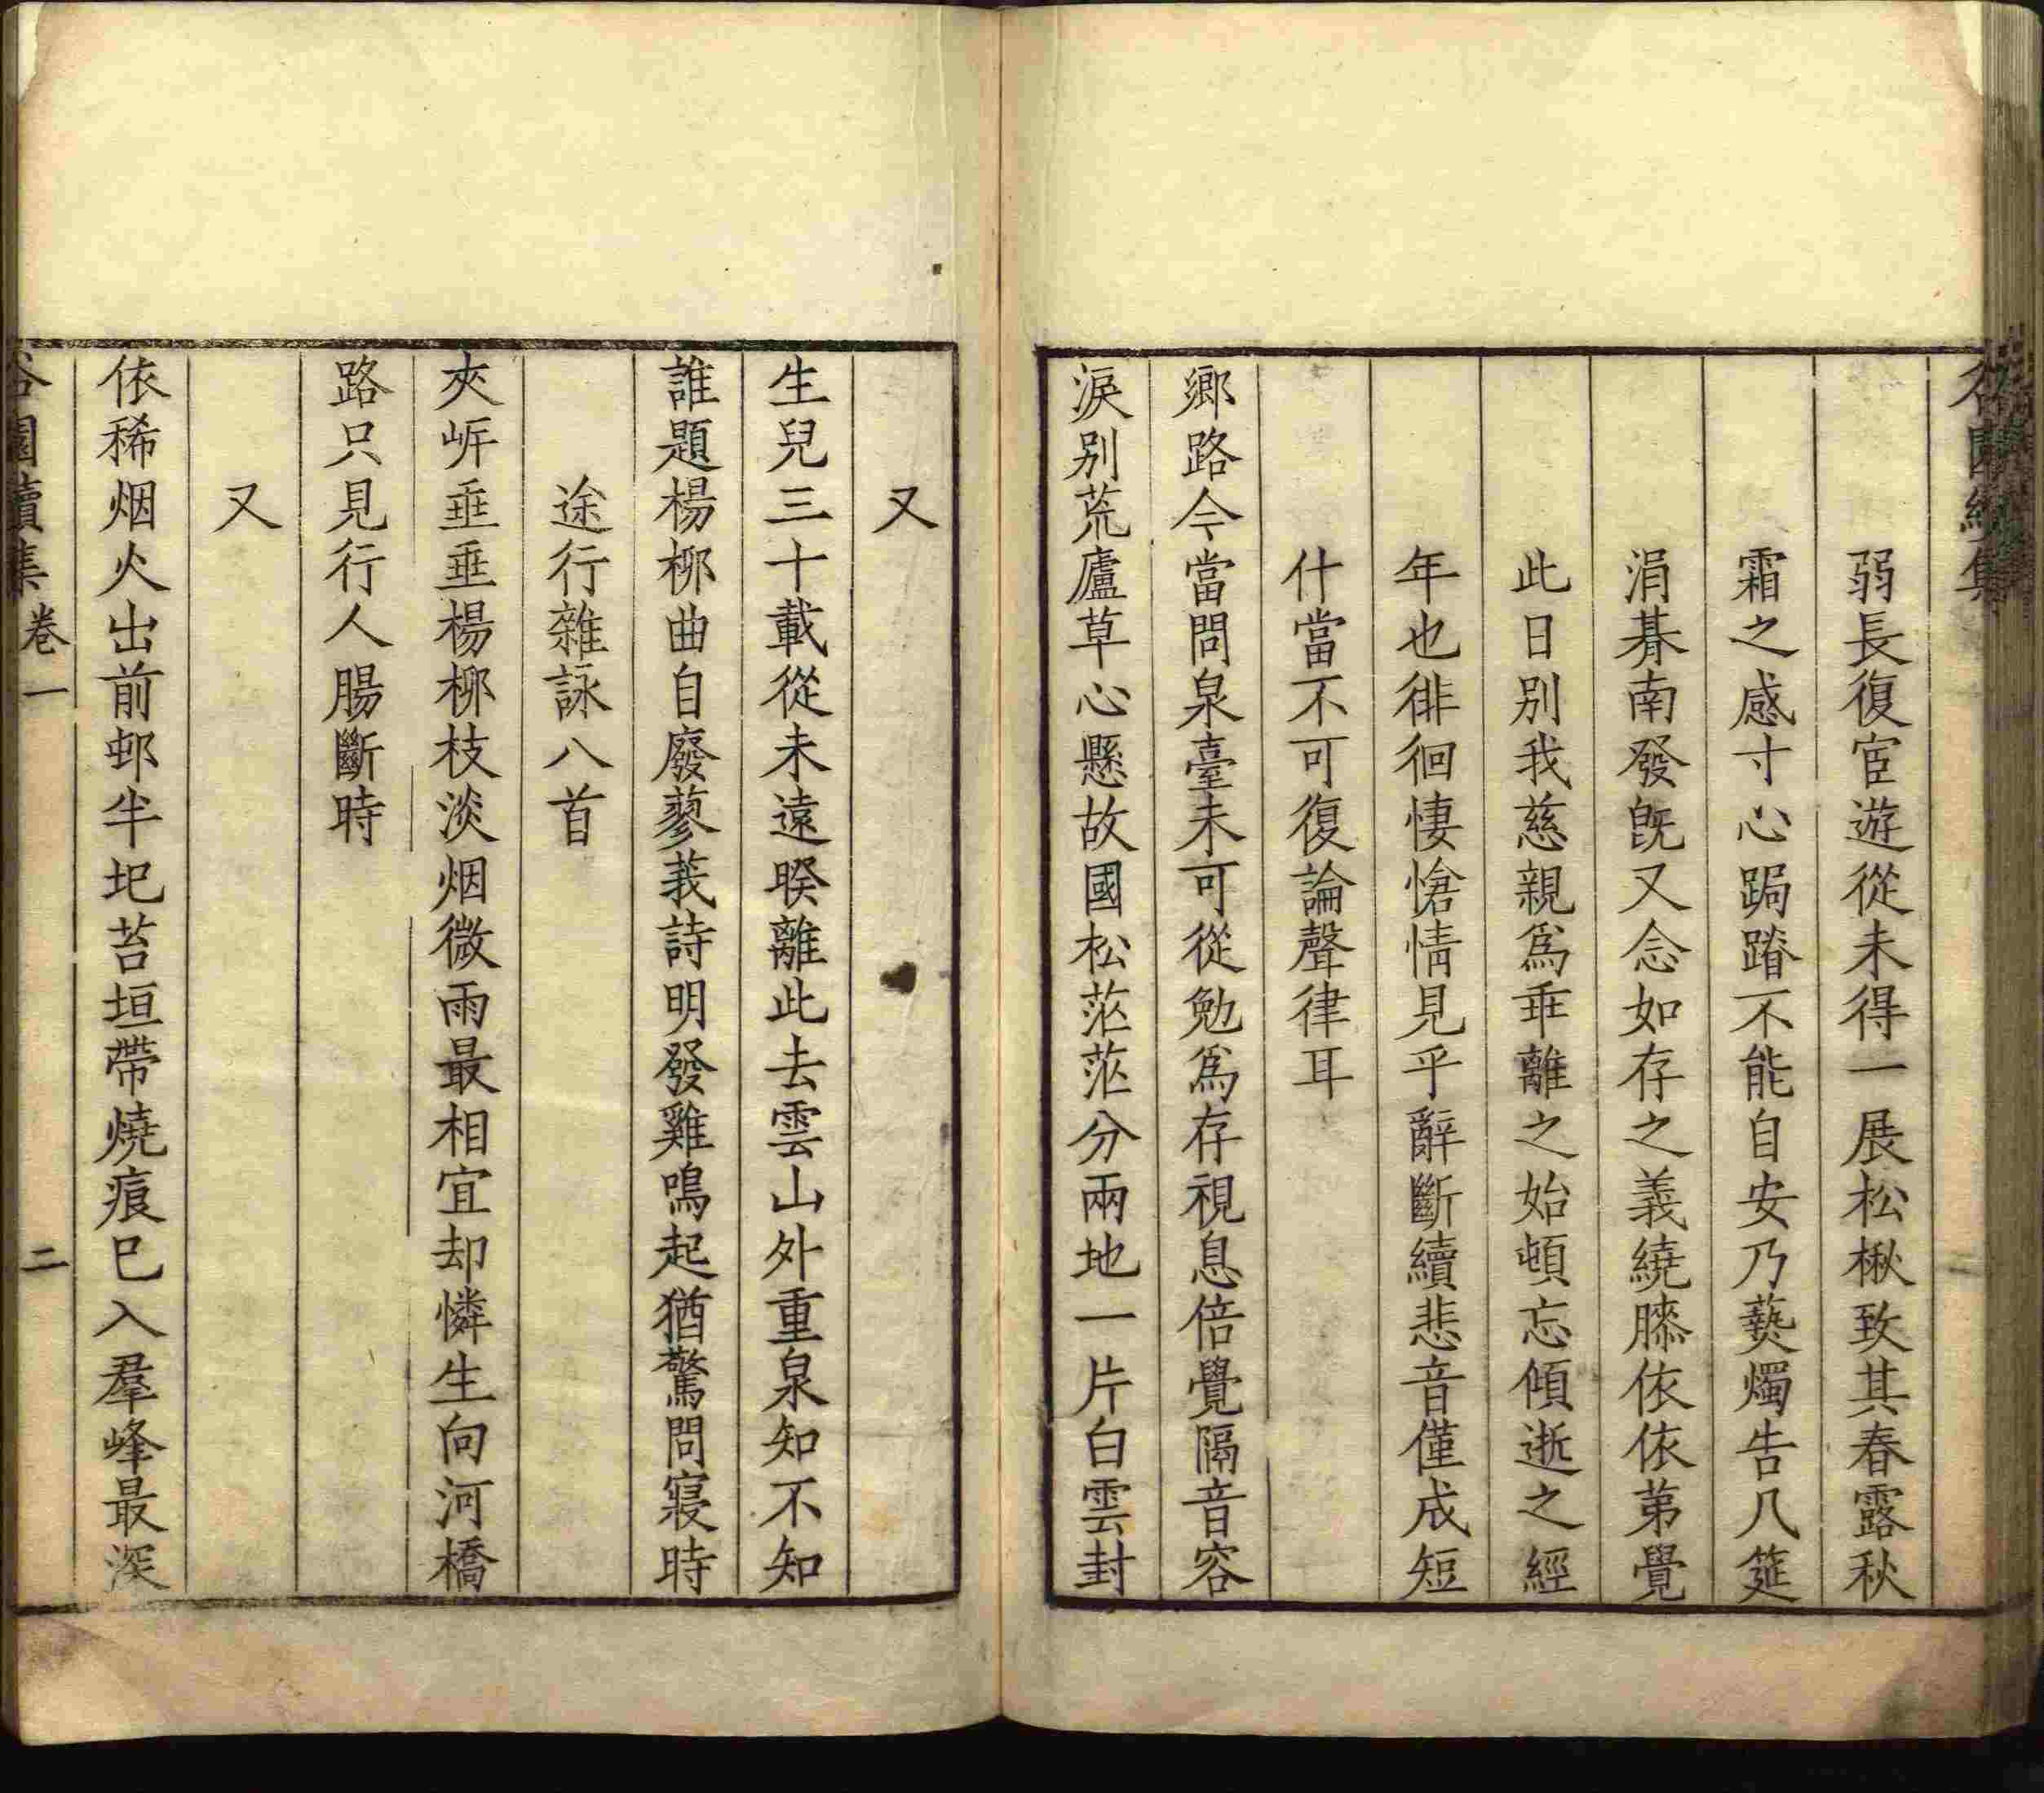 弱長復宦遊從未得一展松楸致其春露秋
霜之感寸心跼蹐不能自安乃爇燭告几筵
涓朞南發旣又念如存之義繞膝依依苐覺
此日別我慈親爲乖離之始頓忘傾逝之經
年也徘徊悽愴情見乎辭斷續悲音僅成短
什當不可復論聲律耳
鄉路今當問泉臺未可從勉爲存視息倍覺隔音容
淚別荒廬草心懸故國松茫茫分兩地一片白雲封
又
生兒三十載從未遠暌離此去雲山外重泉知不知
誰題楊栁曲自廢蓼莪詩明發雞鳴起猶驚問寢時
途行雜詠八首
夾岓垂垂楊栁枝淡烟微雨最相宜却憐生向河橋
路只見行人腸斷時
又
依稀烟火出前邨半圯苔垣帶燒痕巳入羣峰最深
谷園續集 卷一 二